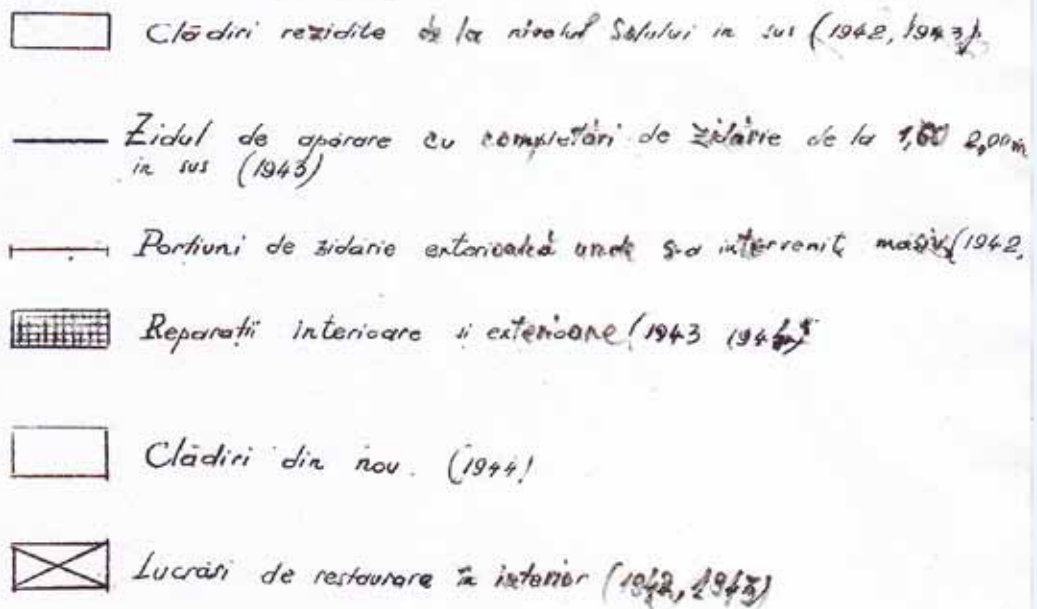 Clădiri rezidite de la nivelul Solului in sus (1942, 1943)
Zidul de apărare cu completări de Zidărie de la 1,60 2,00 m
in sus (1943)
Portiuni de zidărie exterioară unde s-a intervenit masiv (1942,
Reparații interioare si exterioare (1943
Clădiri din nou. (1944)
Lucrări de restaurare în interior (1942, 1943)